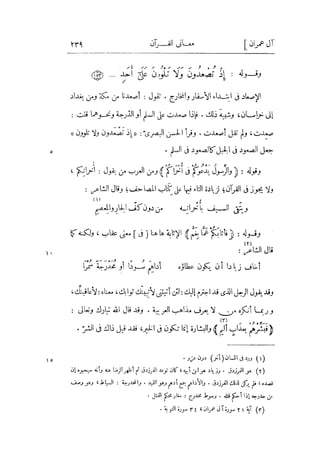 آل عمران ] معانى القرآن ٢٣٩
وقوله : إِذْ تُصْعِدُونَ وَلَا تَلْوُونَ عَلَىٰٓ أَحَدٍ ... ١٥٣
الإصعاد فى ابتداء الأسفار والمخارج . تقول : أصعدنا من مكة ومن بغداد
إلى خراسان ، وشبيه ذلك . فإذا صعدت على السلم أو الدرجة ونحوهما قلت :
صعدت ، ولم تقل أصعدت . وقرأ الحسن البصرىّ : « إذ تَصْعَدون ولا تلوون »
جعل الصعود فى الجبل كالصعود فى السلم . ٥
وقوله : ﴿ والرَّسُولُ يَدْعُوكُمْ فِى أُخْرَاكُمْ ﴾ ومن العرب من يقول : أُخراتِكم ،
ولا يجوز فى القرآن ؛ لزيادة التاء فيها على كتاب المصاحف ؛ وقال الشاعر :
ويتَّقى السيف بأُخْراتِه من دون كفّ الجار والمِعصم (١)
وقوله : ﴿ فَأَثَابَكُمْ غَمًّا بِغَمٍّ ﴾ الإثابة هاهنا [ فى ] معنى عقاب ، ولكنه كما
قال الشاعر (٢) : ١٠
أخاف زيادا أن يكون عطاؤه أداهِمَ سُودًا أو مُحَدْرَجَةً سُمْرًا
وقد يقول الرجل الذى قد اجترم إليك : لئن أتيتنى لأثيبنّك ثوابك ، معناه : لأعاقبنّك ،
وربما أنكره من لا يعرف مذاهب العربية . وقد قال الله تبارك وتعالى :
﴿ فَبَشِّرْهُمْ بِعَذَابٍ أَلِيمٍ (٣) ﴾ والبشارة إنما تكون فى الخير ، فقد قيل ذاك فى الشرّ .
(١) ورد فى اللسان ( أخر ) دون عزو . ١٥
(٢) هو الفرزدق . وزياد هو ابن أبيه ؛ كان توعد الفرزدق ثم أظهر الرضا عنه وأنه سيحبوه إن
قصده ؛ فلم يركن لذلك الفرزدق . والأداهم جمع أدهم وهو القيد . والمحدرجة : السياط ، وهو وصف
من حدرجه إذا أحكم فتله . وسوط محدرج : مغار محكم الفتل .
(٣) آية ٢١ سورة آل عمران ، ٣٤ سورة التوبة .